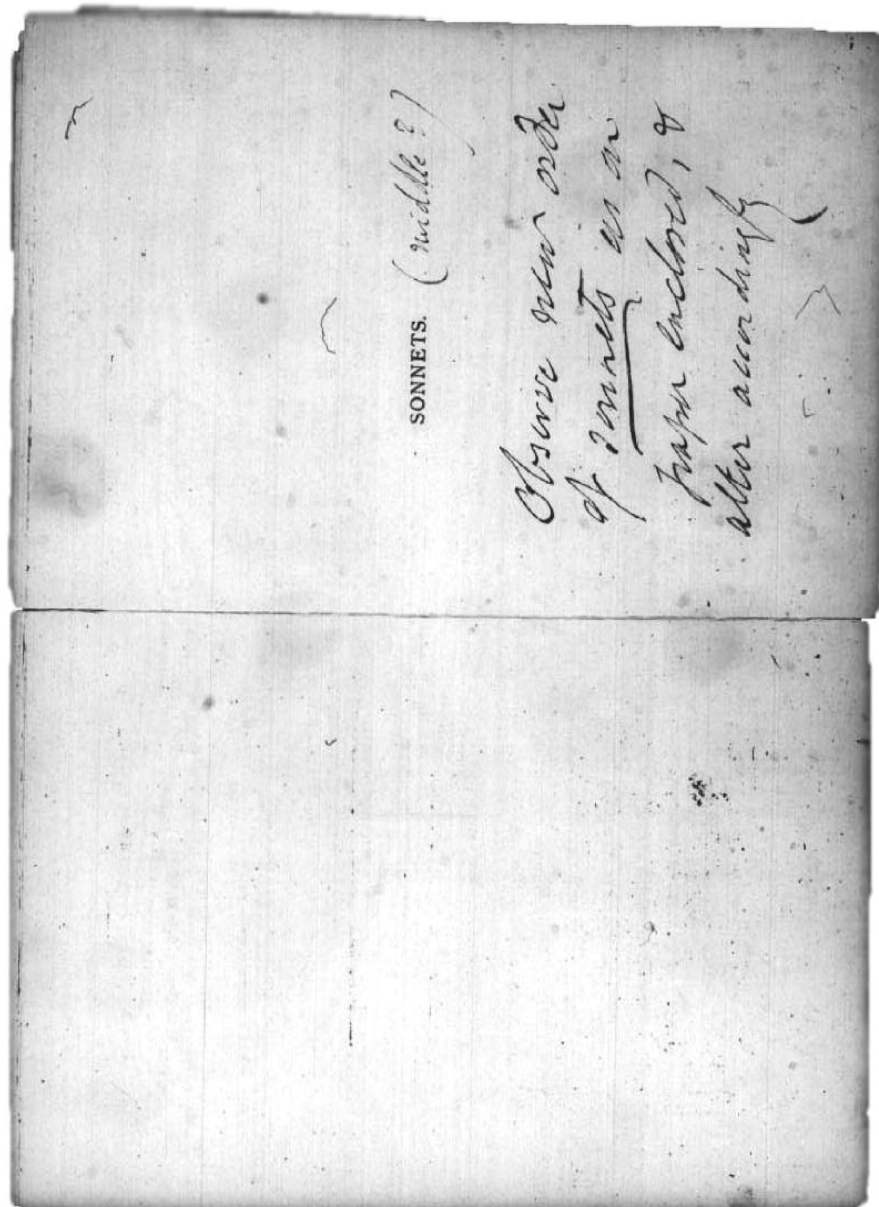 SONNETS. (middle?)
Observe new order
of sonnets as on
paper enclosed, &
alter accordingly